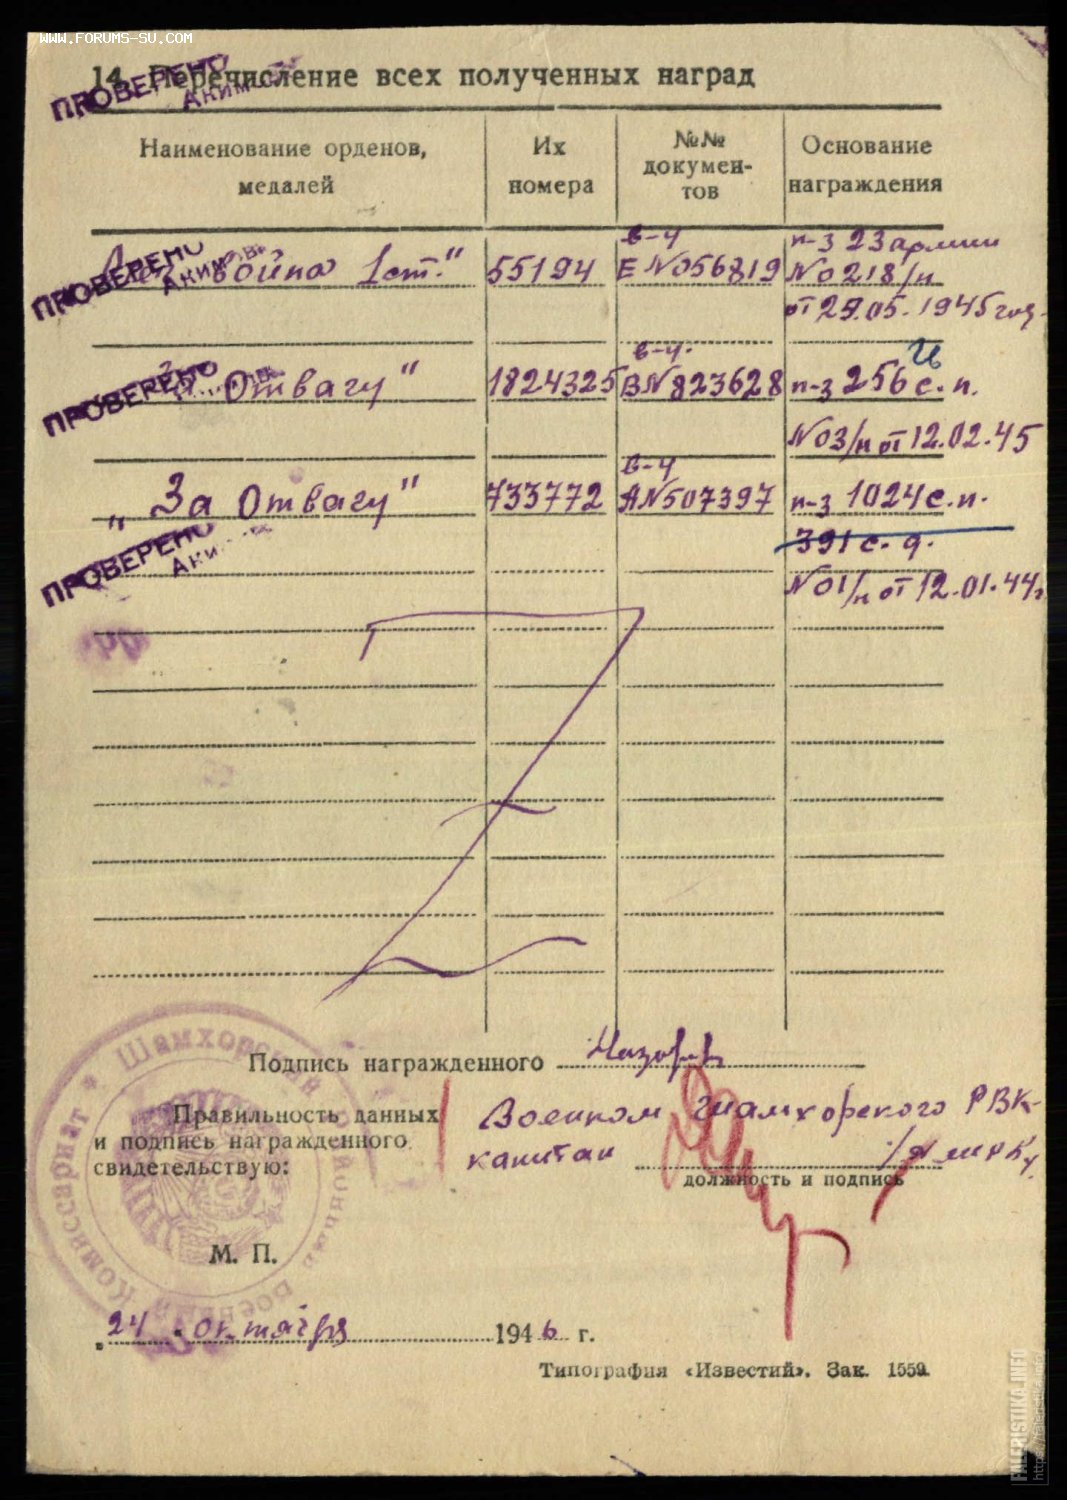 WWW.FORUMS-SU.COM
14. Перечисление всех полученных наград
ПРОВЕРЕНО
Наименование орденов, медалей
Их номера
№№ документов
Основание награждения
ПРОВЕРЕНО
война 1 ст."
55194
в-ч
Е №056819
п-з 23 армии
№0218/н
от 29.05.1945 год.
ПРОВЕРЕНО
Отвагу"
1824325
в-ч.
В№823628
п-з 256 с.п.
№03/н от 12.02.45
„За Отвагу"
733772
в-ч
А№507397
п-з 1024 с.п.
391 с.д.
№01/н от 12.01.44г
ПРОВЕРЕНО
Подпись награжденного
Правильность данных
и подпись награжденного
свидетельствую:
Военком Шамхорского РВК-
капитан
должность и подпись
Шамхорский Районный Военный Комиссариат
М. П.
„24" октября 1946 г.
Типография «Известий». Зак. 1559.
FALERISTIKA.INFO